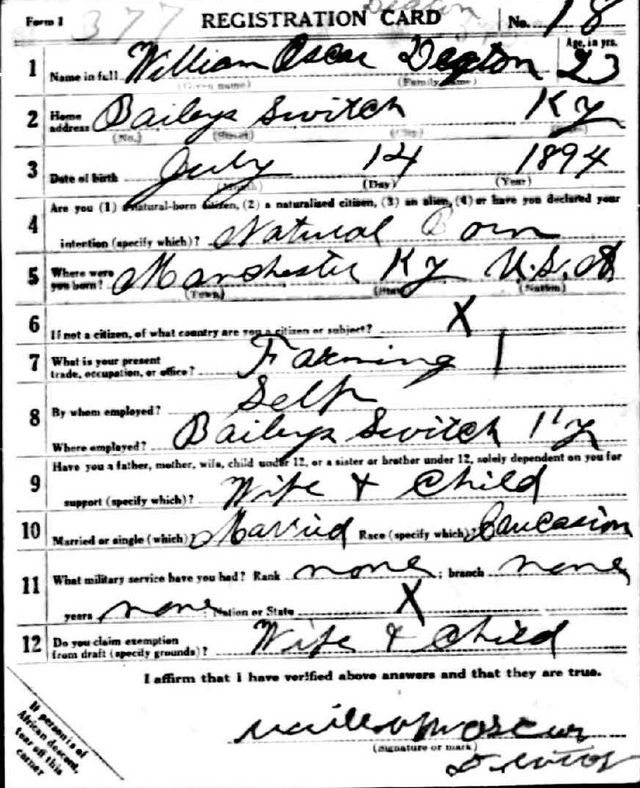 Form 1 377 REGISTRATION CARD No. 18
Deaton
1 Name in full William Oscar Deaton Age, in yrs. 23
(Given name) (Family name)
2 Home address Baileys Switch Ky
(No.) (Street) (City) (State)
3 Date of birth July 14 1894
(Month) (Day) (Year)
4 Are you (1) a natural-born citizen, (2) a naturalized citizen, (3) an alien, (4) or have you declared your
intention (specify which)? Natural Born
5 Where were you born? Manchester Ky U.S.A
(Town) (State) (Nation)
6 If not a citizen, of what country are you a citizen or subject? X
7 What is your present trade, occupation, or office? Farming 1
8 By whom employed? Self
Where employed? Baileys Switch Ky
9 Have you a father, mother, wife, child under 12, or a sister or brother under 12, solely dependent on you for
support (specify which)? Wife + Child
10 Married or single (which) Married Race (specify which)? Caucasion
11 What military service have you had? Rank none ; branch none
years none ; Nation or State X
12 Do you claim exemption from draft (specify grounds)? Wife + Child
I affirm that I have verified above answers and that they are true.
If person is of
African descent,
tear off this
corner
Oscar
(Signature or mark)